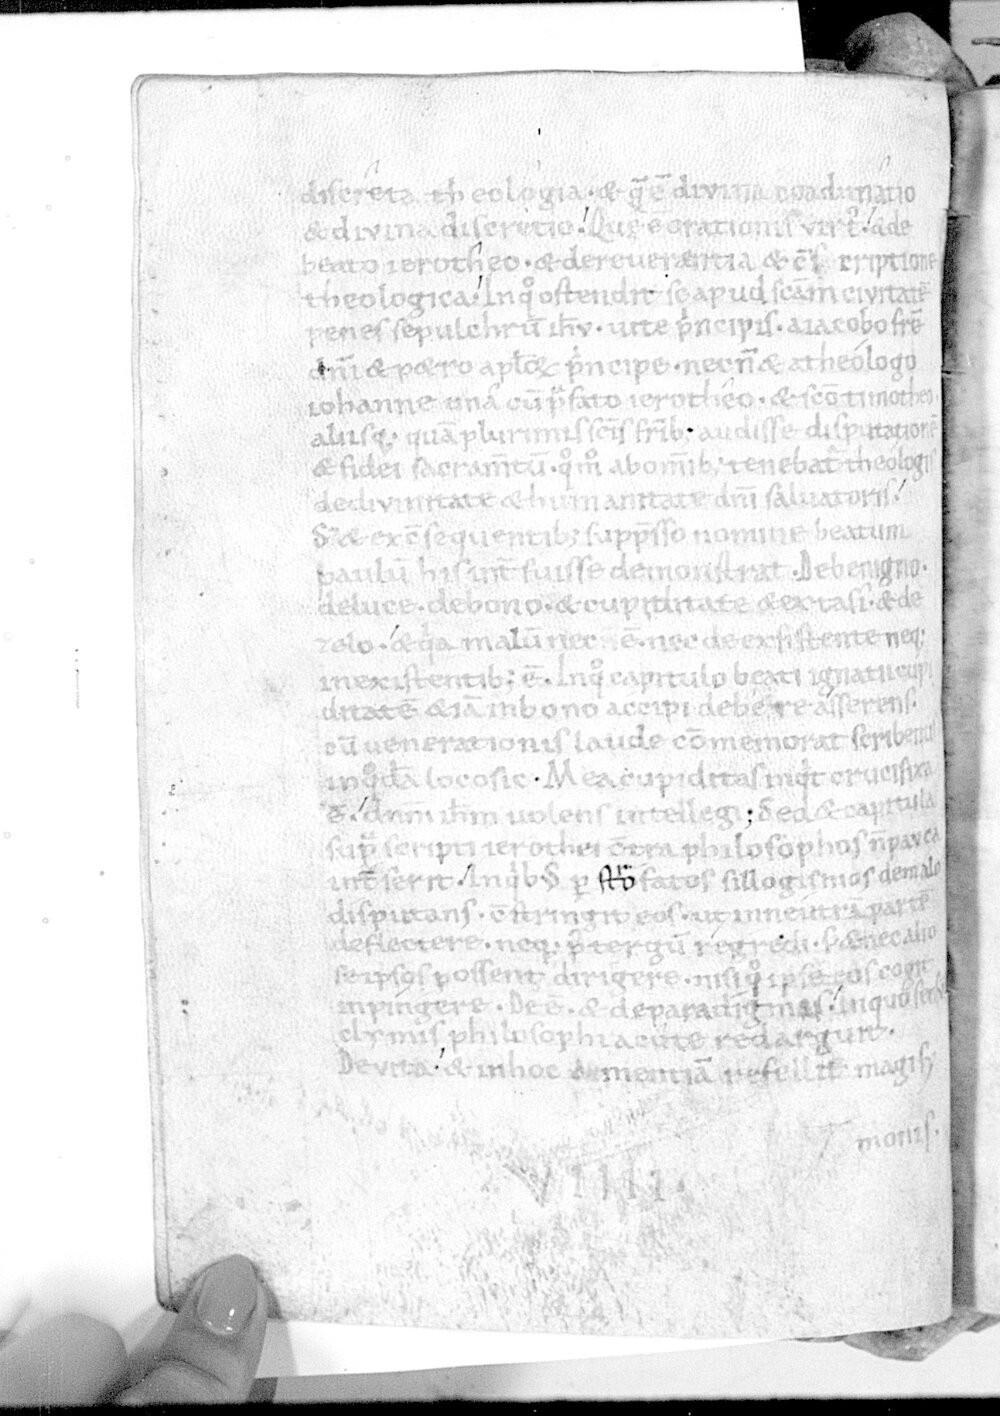 discreta theologia · & q̄ ē divina coadunatio
& divina discretio! Quę ē orationis virt᷒! & de
beato ierotheo · & de reverentia & c̄scriptione
theologica! Inq̊ ostendit se apud scām civitatē
penes sepulchrū ihv̄ · uite p̍ncipis · a iacobo frē
dn̄i & petro aplōꝝ p̍ncipe · necn̄ & a theologo
iohanne una cū p̄fato ierotheo · & scō timotheo
aliisq; quā plurimis scīs frīb; audisse disputationē
& fidei sacram̄tū · q̊m̊ ab om̄ib; tenebat᷒ theologis
de divinitate & humanitate dn̄i salvatoris!
S; & ex c̄sequentib; supp̄sso nomine beatum
paulū his int̄fuisse demonstrat · De benigno ·
de luce · de bono · & cupiditate & extasi · & de
zelo · & q̍a malū nec ē · nec de exsistente neq;
in existentib; ē · Inq̊ capitulo beati ignatii cupi
ditatē & iā in bono accipi debere asserens ·
cū venerationis laude cōmemorat scribentis
in q̊dā loco sic · Mea cupiditas inq̍t crucifixa
ē! dn̄m ihm̄ volens intellegi; Sed & capitula
sup̄scripti ierothei c̄tra philosophos n̄ pauca
int̄serit! Inq̍b; p̱ fatos sillogismos de malo
disputans · c̄stringit eos · ut in neutrā partē
deflectere · neq; p̱ tergū regredi · s; & nec alio
se ipsos possent dirigere · nisi q̊ ipse eos cogit
inpingere · De ē · & de paradigmis! In quib; &
clymis philosophi acute redarguit ·
De vita! & in hoc dementiā refellit magi sy
monis ·
VIIII ·